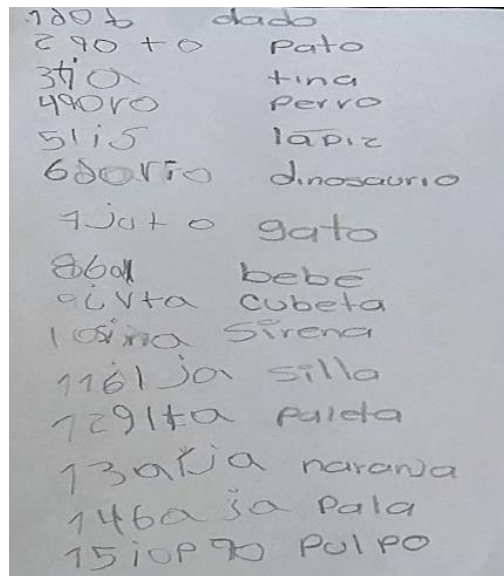 1 dob dado
2 90to pato
3 tia tina
4 90ro perro
5 lis lápiz
6 dorio dinosaurio
7 jato gato
8 6a bebé
9 civta cubeta
10 sina sirena
11 61ja silla
12 91ta paleta
13 arja naranja
14 6aja pala
15 iop90 pulpo